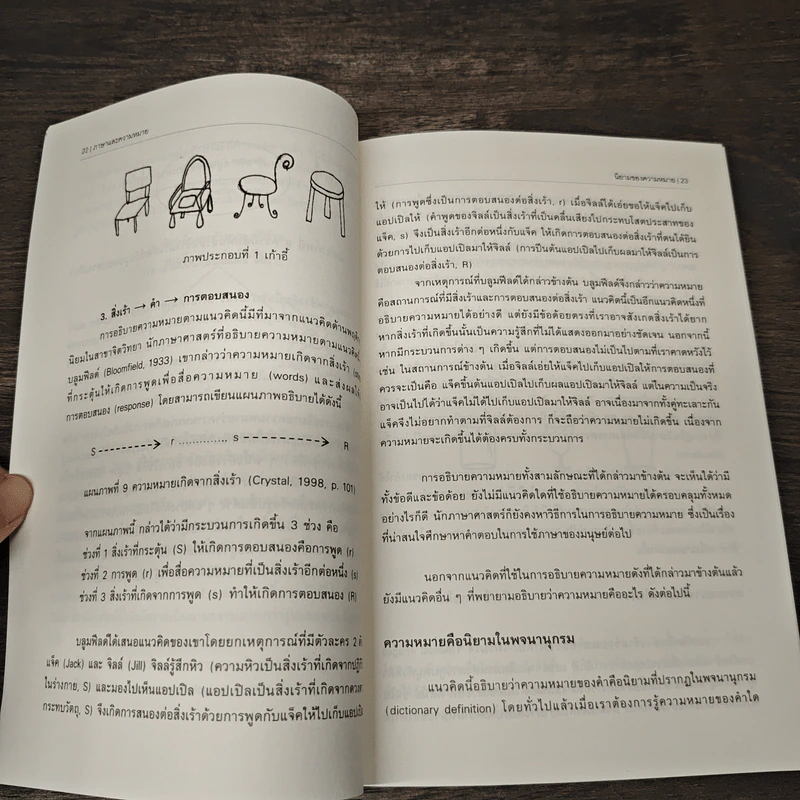 22 | ภาษาและความหมาย
ภาพประกอบที่ 1 เก้าอี้
3. สิ่งเร้า → คำ → การตอบสนอง
การอธิบายความหมายตามแนวคิดนี้มีที่มาจากแนวคิดด้าน
นิยมในสาขาจิตวิทยา นักภาษาศาสตร์ที่อธิบายความหมายตามแนวคิดนี้
บลูมฟีลด์ (Bloomfield, 1933) เขากล่าวว่าความหมายเกิดจากสิ่งเร้า
ที่กระตุ้นให้เกิดการพูดเพื่อสื่อความหมาย (words) และส่งผลให้
การตอบสนอง (response) โดยสามารถเขียนแผนภาพอธิบายได้ดังนี้
S -------> r ............. s --------> R
แผนภาพที่ 9 ความหมายเกิดจากสิ่งเร้า (Crystal, 1998, p. 101)
จากแผนภาพนี้ กล่าวได้ว่ามีกระบวนการเกิดขึ้น 3 ช่วง คือ
ช่วงที่ 1 สิ่งเร้าที่กระตุ้น (S) ให้เกิดการตอบสนองคือการพูด (r)
ช่วงที่ 2 การพูด (r) เพื่อสื่อความหมายที่เป็นสิ่งเร้าอีกต่อหนึ่ง (s)
ช่วงที่ 3 สิ่งเร้าที่เกิดจากการพูด (s) ทำให้เกิดการตอบสนอง (R)
บลูมฟีลด์ได้เสนอแนวคิดของเขาโดยยกเหตุการณ์ที่มีตัวละคร 2
แจ็ค (Jack) และ จิลล์ (Jill) จิลล์รู้สึกหิว (ความหิวเป็นสิ่งเร้าที่เกิดจาก
ในร่างกาย, S) และมองไปเห็นแอปเปิล (แอปเปิลเป็นสิ่งเร้าที่เกิดจาก
กระทบวัตถุ, S) จึงเกิดการสนองต่อสิ่งเร้าด้วยการพูดกับแจ็คให้ไปเก็บ
นิยามของความหมาย | 23
ให้ (การพูดซึ่งเป็นการตอบสนองต่อสิ่งเร้า, r) เมื่อจิลล์ได้เอ่ยขอให้แจ็คไปเก็บ
แอปเปิลให้ (คำพูดของจิลล์เป็นสิ่งเร้าที่เป็นคลื่นเสียงไปกระทบโสตประสาทของ
แจ็ค, s) จึงเป็นสิ่งเร้าอีกต่อหนึ่งกับแจ็ค ให้เกิดการตอบสนองต่อสิ่งเร้าที่ตนได้ยิน
ด้วยการไปเก็บแอปเปิลมาให้จิลล์ (การปีนต้นแอปเปิลไปเก็บผลมาให้จิลล์เป็นการ
ตอบสนองต่อสิ่งเร้า, R)
จากเหตุการณ์ที่บลูมฟีลด์ได้กล่าวข้างต้น บลูมฟีลด์จึงกล่าวว่าความหมาย
คือสถานการณ์ที่มีสิ่งเร้าและการตอบสนองต่อสิ่งเร้า แนวคิดนี้เป็นอีกแนวคิดหนึ่งที่
อธิบายความหมายได้อย่างดี แต่ยังมีข้อด้อยตรงที่เราอาจสังเกตสิ่งเร้าได้ยาก
หากสิ่งเร้าที่เกิดขึ้นนั้นเป็นความรู้สึกที่ไม่ได้แสดงออกมาอย่างชัดเจน นอกจากนี้
หากมีกระบวนการต่าง ๆ เกิดขึ้น แต่การตอบสนองไม่เป็นไปตามที่เราคาดหวังไว้
เช่น ในสถานการณ์ข้างต้น เมื่อจิลล์เอ่ยให้แจ็คไปเก็บแอปเปิลให้การตอบสนองที่
ควรจะเป็นคือ แจ็คขึ้นต้นแอปเปิลไปเก็บผลแอปเปิลมาให้จิลล์ แต่ในความเป็นจริง
อาจเป็นไปได้ว่าแจ็คไม่ได้ไปเก็บแอปเปิลมาให้จิลล์ อาจเนื่องมาจากทั้งคู่ทะเลาะกัน
แจ็คจึงไม่อยากทำตามที่จิลล์ต้องการ ก็จะถือว่าความหมายไม่เกิดขึ้น เนื่องจาก
ความหมายจะเกิดขึ้นได้ต้องครบทั้งกระบวนการ
การอธิบายความหมายทั้งสามลักษณะที่ได้กล่าวมาข้างต้น จะเห็นได้ว่ามี
ทั้งข้อดีและข้อด้อย ยังไม่มีแนวคิดใดที่ใช้อธิบายความหมายได้ครอบคลุมทั้งหมด
อย่างไรก็ดี นักภาษาศาสตร์ก็ยังคงหาวิธีการในการอธิบายความหมาย ซึ่งเป็นเรื่อง
ที่น่าสนใจศึกษาหาคำตอบในการใช้ภาษาของมนุษย์ต่อไป
นอกจากแนวคิดที่ใช้ในการอธิบายความหมายดังที่ได้กล่าวมาข้างต้นแล้ว
ยังมีแนวคิดอื่น ๆ ที่พยายามอธิบายว่าความหมายคืออะไร ดังต่อไปนี้
ความหมายคือนิยามในพจนานุกรม
แนวคิดนี้อธิบายว่าความหมายของคำคือนิยามที่ปรากฏในพจนานุกรม
(dictionary definition) โดยทั่วไปแล้วเมื่อเราต้องการรู้ความหมายของคำใด